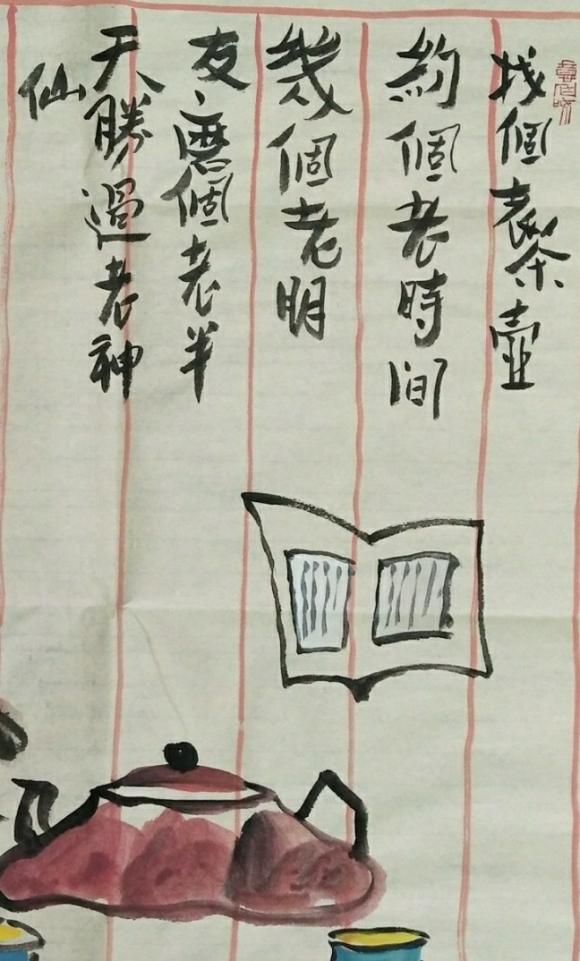 找個老茶壺
約個老時間
幾個老朋
友、磨個老半
天勝過老神
仙